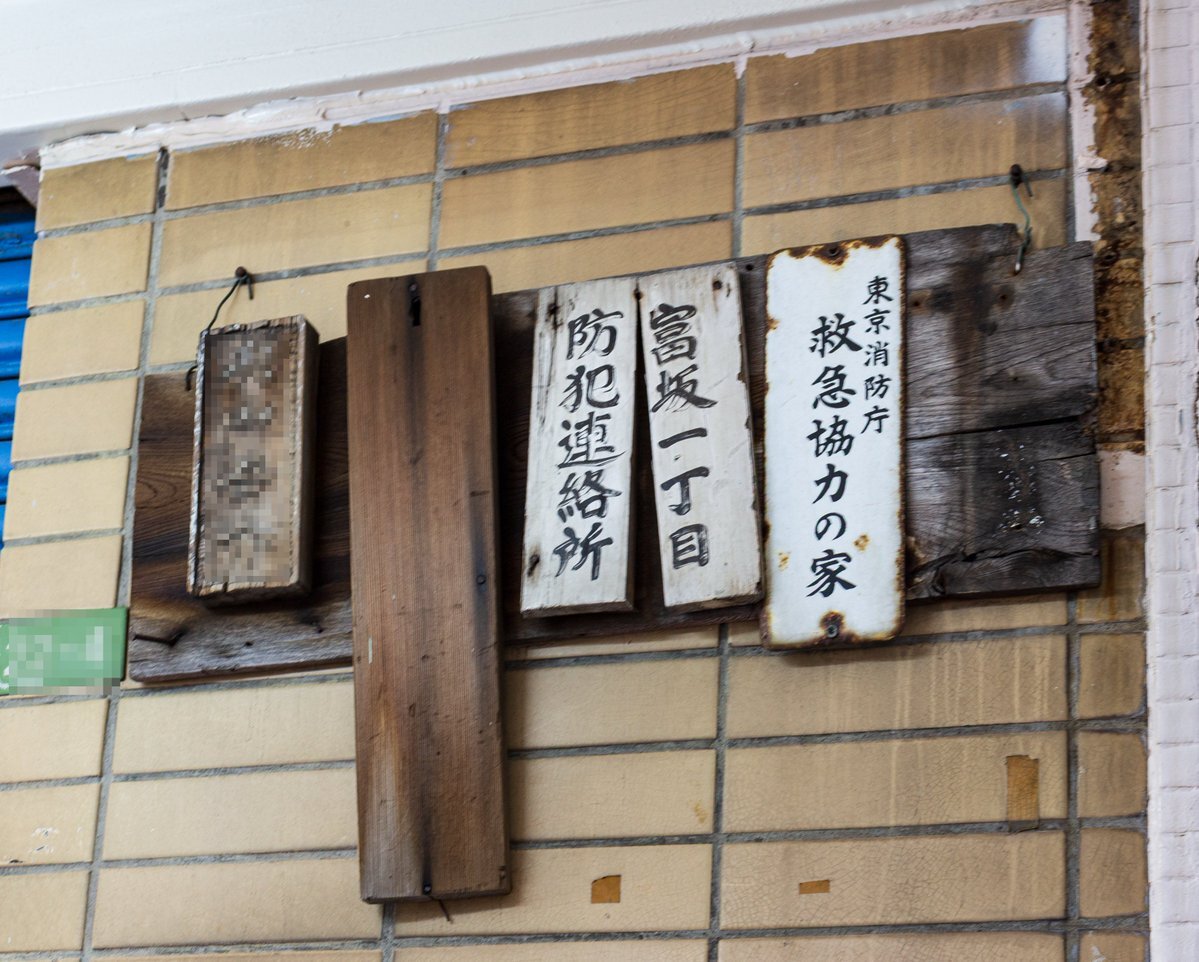 東京消防庁
救急協力の家
富坂一丁目
防犯連絡所